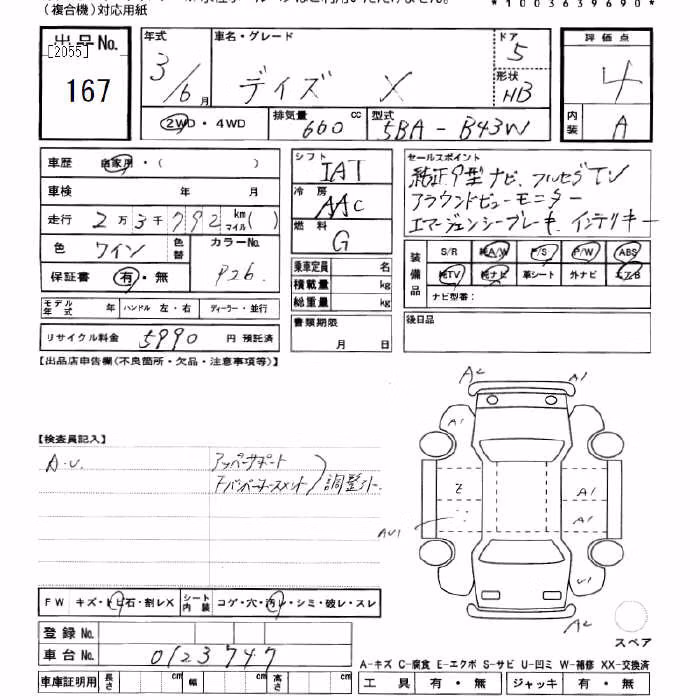 (複合機)対応用紙
*1003639690*
出品No.
[2055]
167
年式
3/6月
車名・グレード
デイズ X
ドア
5
形状
HB
評価点
4
内装
A
2WD・4WD
排気量
660 cc
型式
5BA-B43W
車歴
自家用・( )
車検 年 月
走行 2万3千792 km マイル( )
色 ワイン
色替
カラーNo.
保証書 有・無
モデル年式 年
ハンドル 左・右
ディーラー・並行
リサイクル料金 5990 円 預託済
シフト
IAT
冷房
AAC
燃料
G
乗車定員 名
積載量 kg
総重量 kg
書類期限
月 日
セールスポイント
純正9型ナビ、フルセグTV
アラウンドビューモニター
エマージェンシーブレーキ、インテリキー
装備品
S/R 純A/W P/S P/W ABS
純TV 純ナビ 革シート 外ナビ エアB
ナビ型番:
後日品
【出品店申告欄(不良箇所・欠品・注意事項等)】
【検査員記入】
A.U.
アッパーサポート
調整外
A2
A1
A1
E
A1
A1
AU1
U1
A2
スペア
FW キズ・トビ石・割レX
シート内装 コゲ・穴・汚レ・シミ・破レ・スレ
登録No.
車台No. 0123747
車庫証明用 長さ cm 幅 cm 高さ cm
A-キズ C-腐食 E-エクボ S-サビ U-凹ミ W-補修 XX-交換済
工具 有・無 ジャッキ 有・無